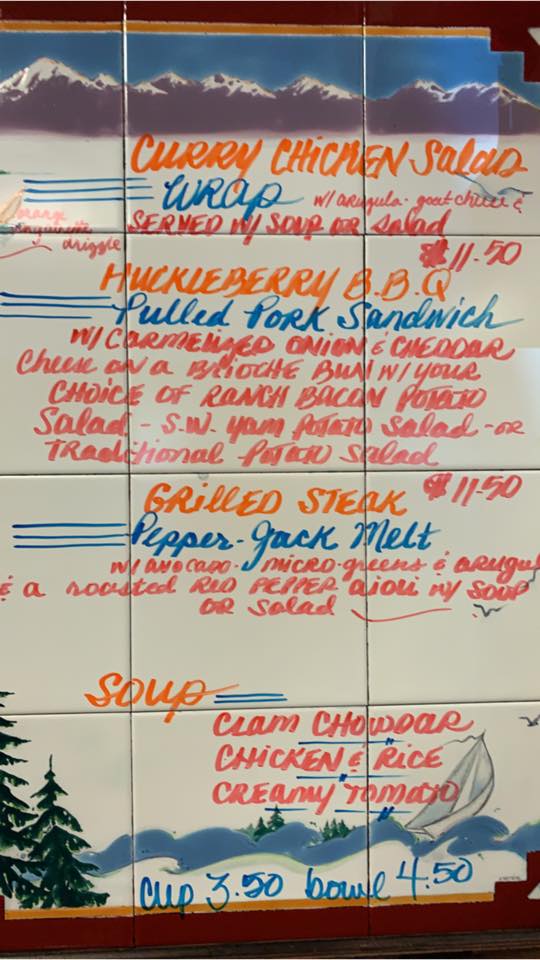 CURRY CHICKEN Salad
WRAP w/ arugula - goat cheese &
orange
vinaigrette
drizzle
SERVED w/ SOUP OR Salad
$11.50
HUCKLEBERRY B.B.Q
Pulled PORK Sandwich
w/ CARMELIZED ONION & CHEDDAR
Cheese on a BRIOCHE BUN w/ YOUR
CHOICE OF RANCH BACON POTATO
Salad - S.W. yam POTATO Salad - OR
TRADitional POTATO Salad
$11.50
GRILLED STEAK
Pepper-Jack Melt
w/ AVOCADO - MICRO-greens & arugul
& a roasted RED PEPPER aioli w/ SOUP
OR Salad
SOUP
CLAM CHOWDAR
CHICKEN & RICE
CREAMY TOMATO
cup 3.50 bowl 4.50